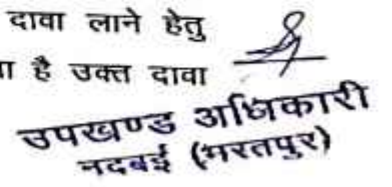 दावा लाने हेतु
है उक्त दावा
उपखण्ड अधिकारी
नदबई (भरतपुर)